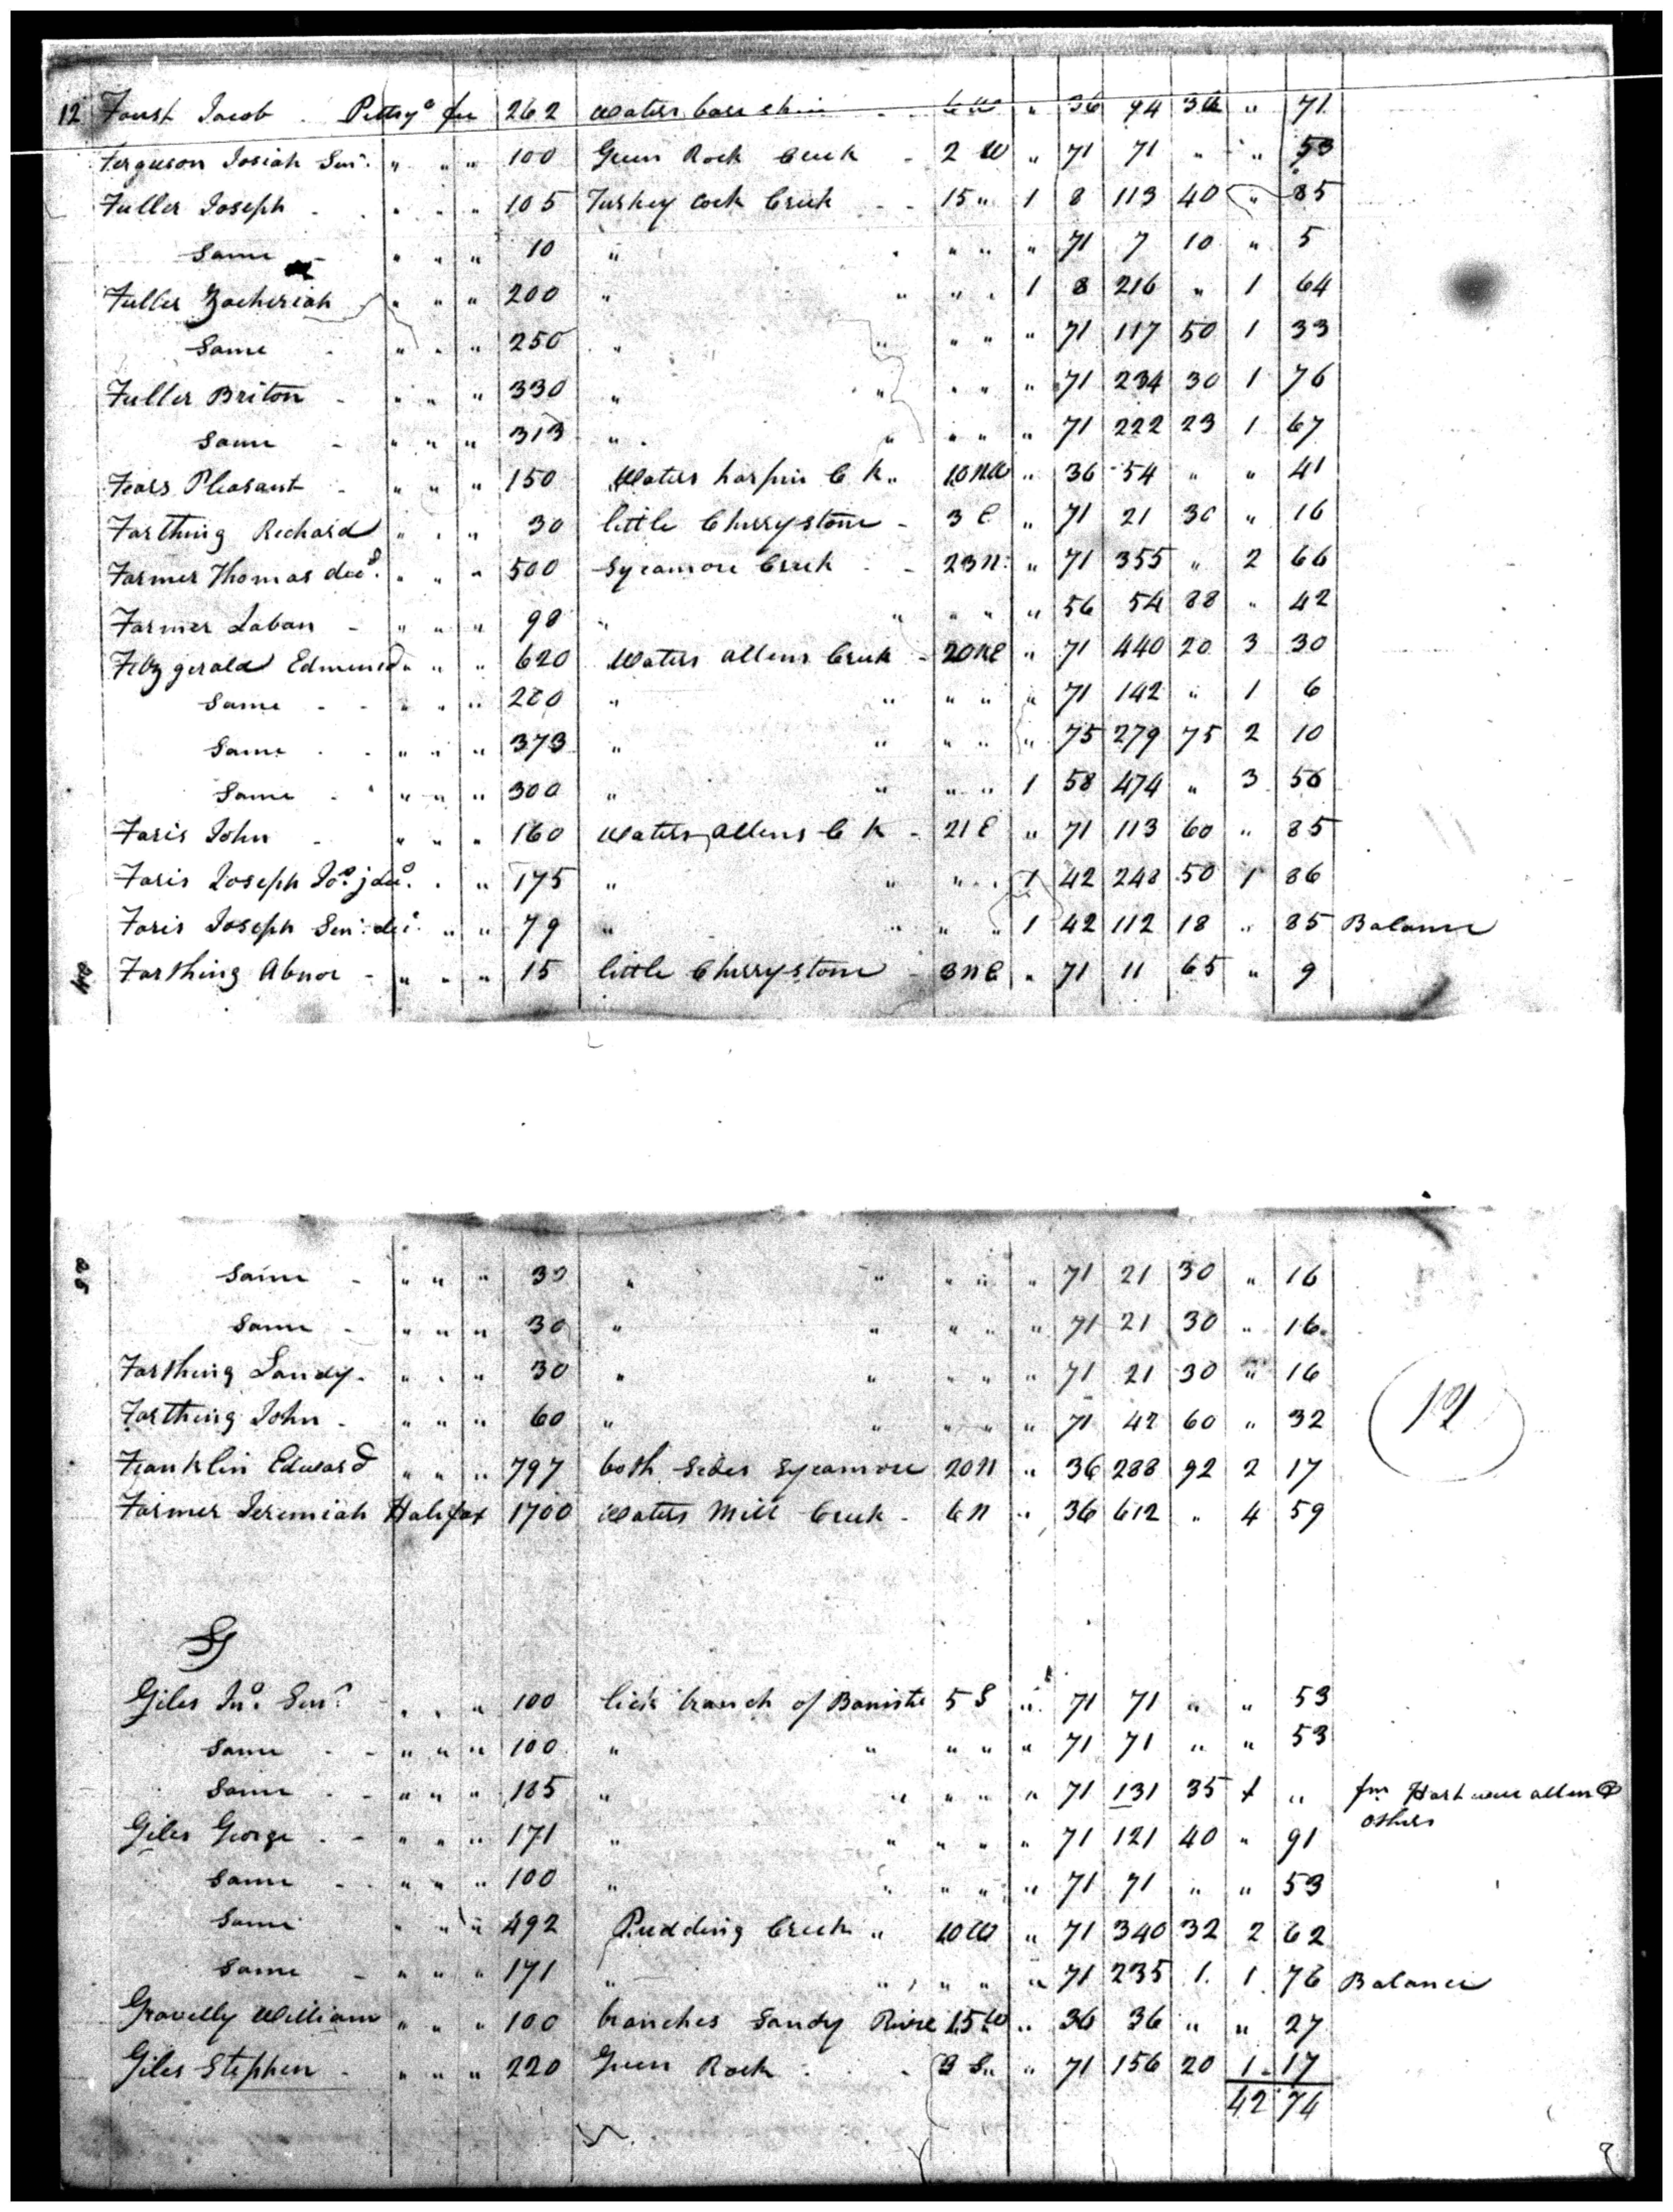 12 Foust Jacob . Pittsyᵃ fee 262 Waters bare skin 6 W " 36 94 32 " 71
Ferguson Josiah Senʳ. " " " 100 Green Rock Creek - 2 W " 71 71 " " 53
Fuller Joseph - . " " " 105 Turkey Cock Creek - - 15 " 1 8 113 40 " 85
Same - " " " 10 " " " " " 71 7 10 " 5
Fuller Zacheriah " " " 200 " " " " 1 8 216 " 1 64
Same - " " " 250 " " " " " 71 117 50 1 33
Fuller Briton - " " " 330 " " " " " 71 234 30 1 76
Same - " " " 313 " " " " " 71 222 23 1 67
Fears Pleasant - " " " 150 Waters harpin C k " 10 NW " 36 54 " " 41
Farthing Richard " " " 30 little Cherrystone - 3 E " 71 21 30 " 16
Farmer Thomas decᵈ. " " " 500 Sycamore Creek - - 23 N. " 71 355 " 2 66
Farmer Laban - " " " 98 " " " " " 56 54 88 " 42
Fitzgerald Edmund " " " 620 Waters allens Creek - 20 NE " 71 440 20 3 30
Same - - " " " 200 " " " " " 71 142 " 1 6
Same - - " " " 373 " " " " " 75 279 75 2 10
Same - " " " 300 " " " " 1 58 474 " 3 56
Faris John - " " " 160 Waters allens C k - 21 E " 71 113 60 " 85
Faris Joseph Joˢ. j decᵈ. " " 175 " " " " 1 42 248 50 1 86
Faris Joseph Senʳ. decᵈ. " " 79 " " " " 1 42 112 18 " 85 Balance
Farthing Abner - " " " 15 little Cherrystone - 3 NE " 71 11 65 " 9
Same - " " " 30 " " " " " 71 21 30 " 16
Same - " " " 30 " " " " " 71 21 30 " 16
Farthing Sandy - " " " 30 " " " " " 71 21 30 " 16
Farthing John - " " " 60 " " " " " 71 42 60 " 32
12
Franklin Edward " " " 797 both Sides Sycamore 20 N " 36 288 92 2 17
Farmer Jeremiah Halifax 1700 Waters Mill Creek - 6 N " 36 612 " 4 59
G
Giles Jnᵒ. Senʳ. " " " 100 lick branch of Baniste 5 S " 71 71 " " 53
Same - - " " " 100 " " " " " 71 71 " " 53
Same - - " " " 185 " " " " " 71 131 35 1 " fm Hartwell allen &
others
Giles George - - " " " 171 " " " " " 71 121 40 " 91
Same - - " " " 100 " " " " " 71 71 " " 53
Same " " " 492 Pudding Creek " 10 W " 71 340 32 2 62
Same - " " " 171 " " " " " 71 235 1 1 76 Balance
Gravelly William " " " 100 branches Sandy River 15 W " 36 36 " " 27
Giles Stephen - " " " 220 Green Rock - - 3 S " " 71 156 20 1 17
42 74